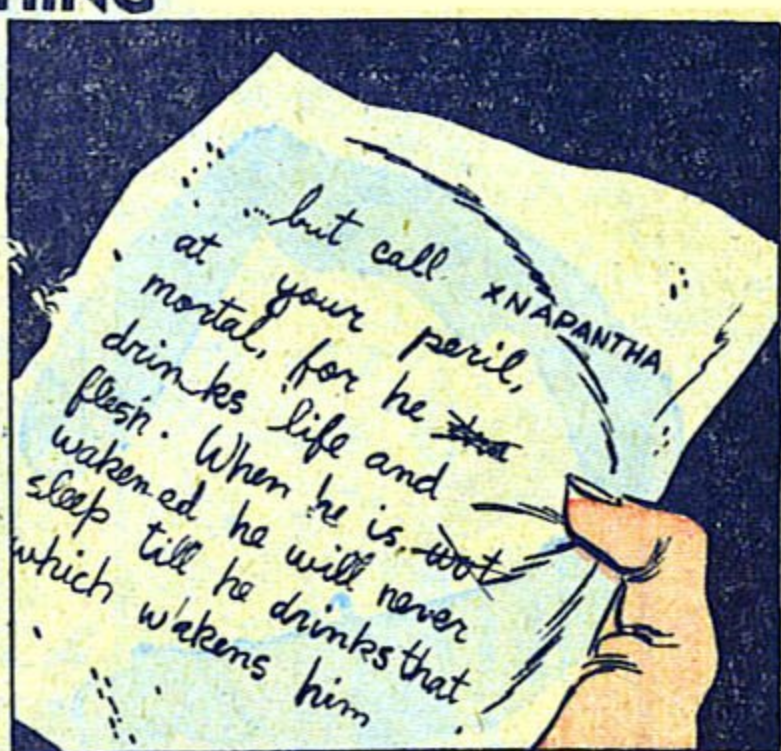 HING
...but call XNAPANTHA
at your peril,
mortal, for he
drinks life and
flesh. When he is wot
wakened he will never
sleep till he drinks that
which wakens him